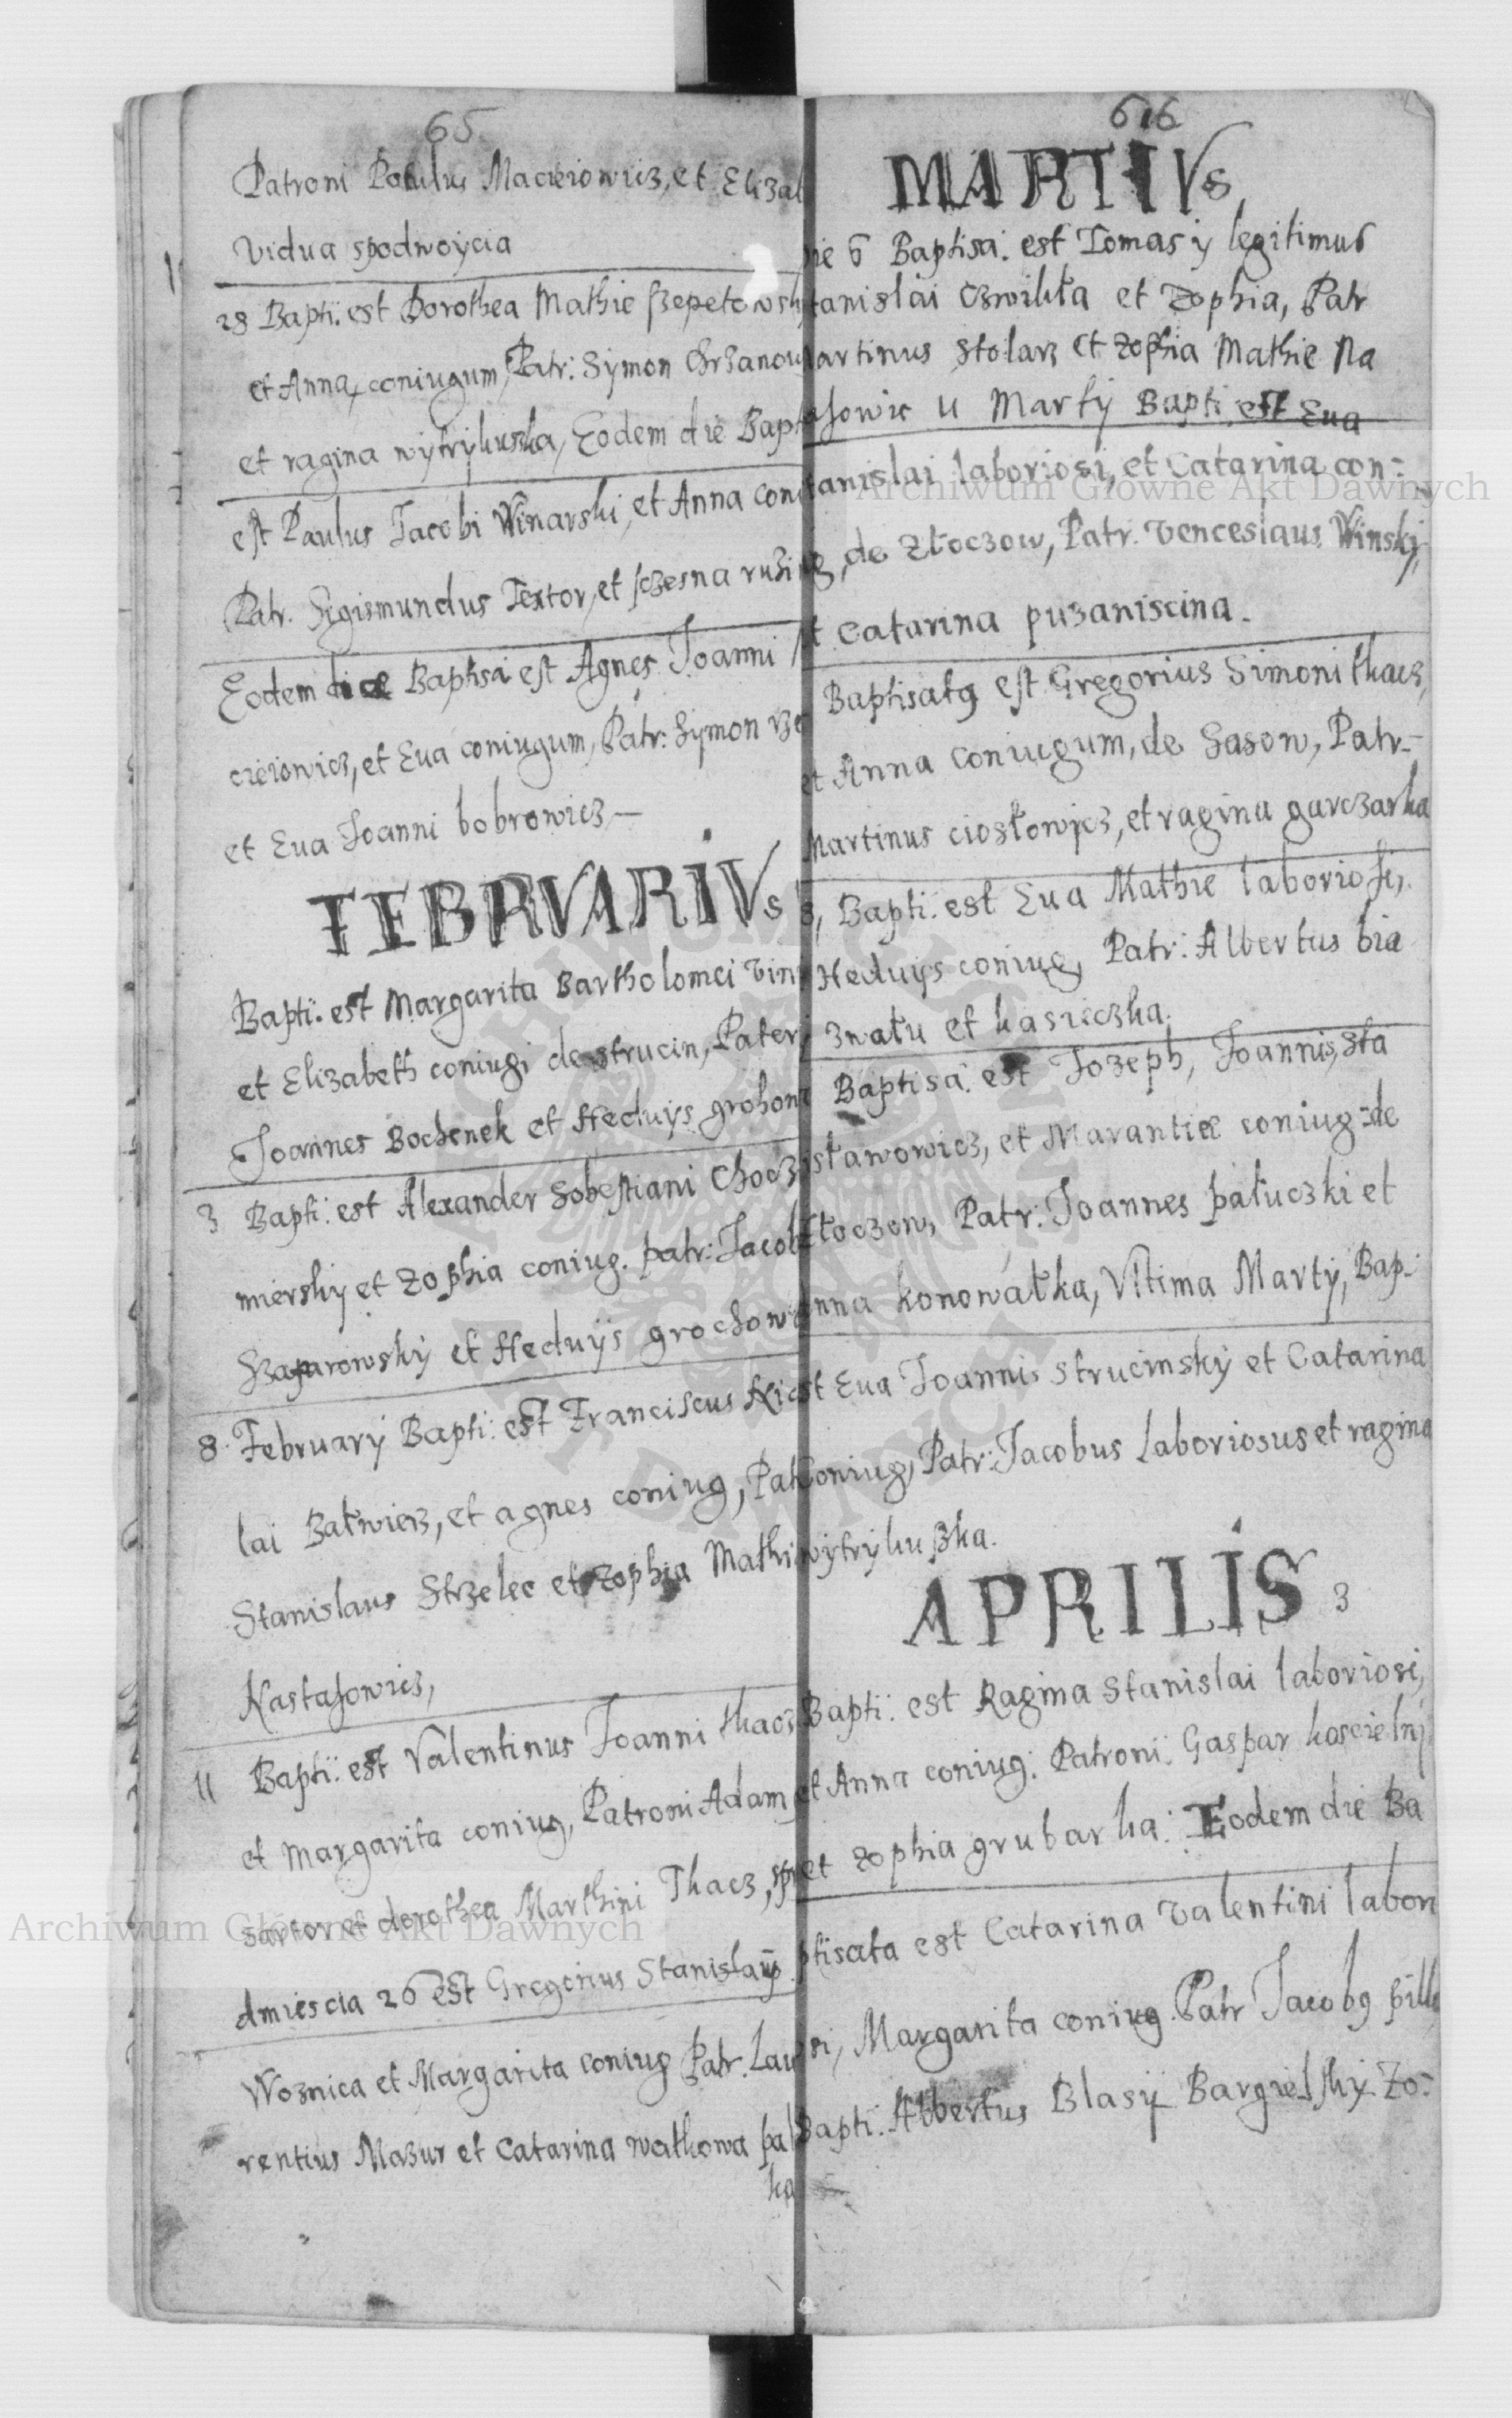 65
Patroni Paulus Macieiowicz, et Elizab
Vidua spodwoycia
28 Bapti. est Dorothea Mathie szepetowsky
et Anna coniugum, Patr: Symon Chrzanow
et ragina wytrykuszka, Eodem die Bapt
est Paulus Jacobi Winarski, et Anna coni
Patr. Sigismundus Textor, et sczesna
Eodem die Baptisa est Agnes Joanni
cieiowicz, et Eua coniugum, Patr: Symon
et Eua Joanni bobrowicz —
FEBRVARIVs
Bapti: est Margarita Bartholomei
et Elizabeth coniugi de strucin, Pater
Joannes Bochenek et Heduijs grohon
3 Bapti: est Alexander Sobestiani Chocz
miersky et Zophia coniug. patr: Jacob
et Heduijs grochow
8. February Bapti: est Franciscus Nic
lai Batwierz, et agnes coniug, Pat
Stanislaus Strzelec et Zophia Mathi
Nastasowicz,
11 Bapti: est Valentinus Joanni thacz
et Margarita coniug, Patroni Adam
sartor et dorothea Marthini Thacz,
dmiescia 26 est Gregorius Stanislay
Woznica et Margarita coniug Patr. Lau
rentius Mazur et Catarina wathowa pal
ka
616
MARTIVs
Die 6 Baptisa. est Tomas y legitimus
tanislai Czwikła et Zophia, Patr
artinus stolarz et zophia Mathie Na
sowic 11 Martij Bapti est Eua
anislai laboriosi, et Catarina con:
de złoczow, Patr. Venceslaus Winskj,
et Catarina puzaniscina.
Baptisatg est Gregorius Simoni thacz,
et Anna coniugum, de Sasow, Patr-
Martinus ciosłowicz, et ragina garczarka
8, Bapti: est Eua Mathie laboriosi,
Heduijs coniug, Patr: Albertus bia
znatu et kasieczka.
Baptisa. est Jozeph, Joannis, sta
sławowicz, et Marantiæ coniug: de
złoczow, Patr: Joannes pałuczki et
nna konowałka, Vltima Martij, Bap:
st Eua Joannis strucinskij et Catarina
Coniug, Patr: Jacobus Laboriosus et ragina
wytrykuszka.
APRILIS 3
Bapti: est Ragina Stanislai laboriosi,
et Anna coniug: Patroni: Gaspar koscielnj
et zophia grubarka: Eodem die Ba
ptisata est Catarina Valentini labori
si, Margarita coniug. Patr Jacobg
Bapti: Albertus Blasij Bargielskij Zo:
Archiwum Główne Akt Dawnych
Archiwum Główne Akt Dawnych
ARCHIWUM GŁÓWNE AKT DAWNYCH